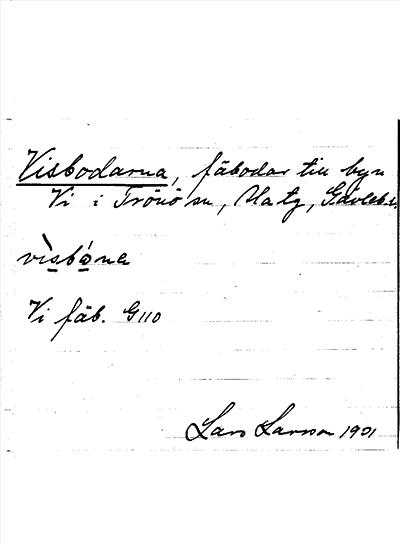 Visbodarna, fäbodar till byn
Vi i Trönö sn, Hälsingland, Gävleb. l.
vìsbǻna
Vi fäb. G 110
Lars Larsson 1901